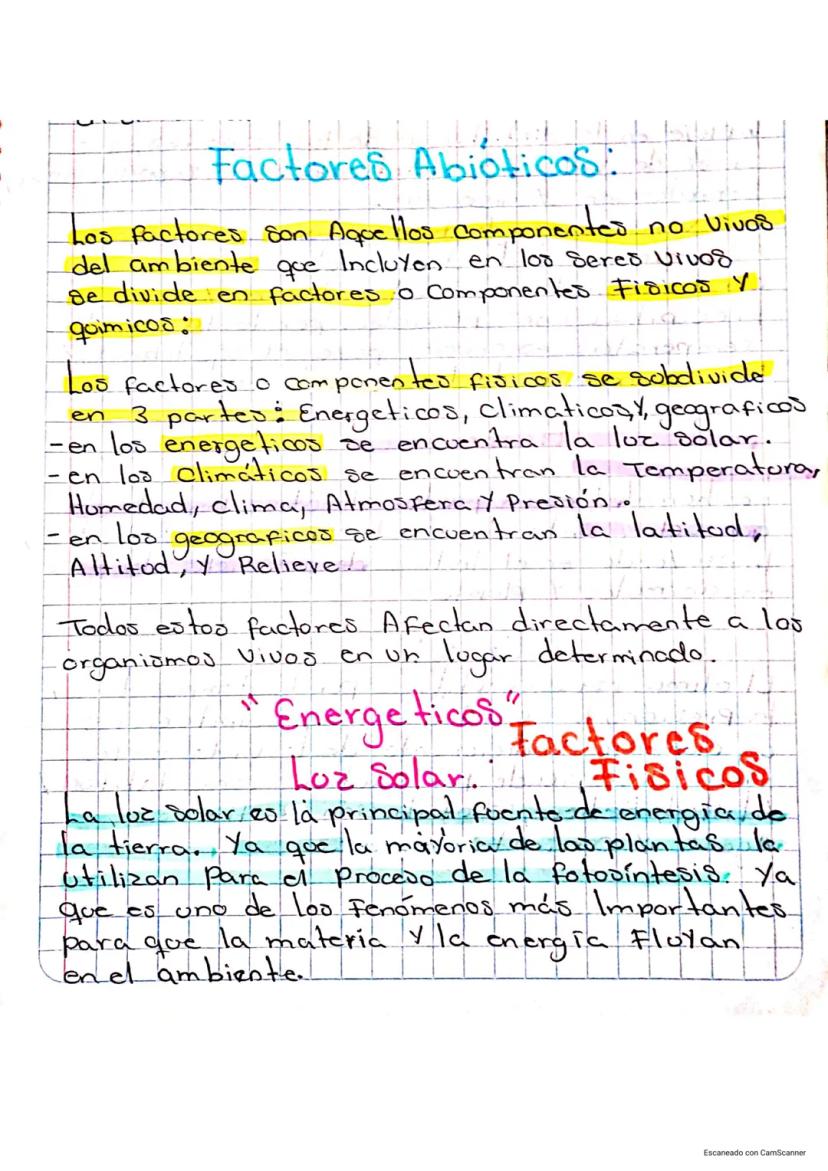 Factores Abióticos:
Los factores son Aquellos componentes no vivos
del ambiente que Incluyen en los seres vivos
se divide en factores o Componentes Fisicos y
quimicos:
Los factores o componentes fisicos se subdivide
en 3 partes: Energeticos, Climaticos, Y, geograficos
- en los energeticos se encuentra la luz solar.
- en los Climáticos se encuentran la Temperatura,
Humedad, clima, Atmosfera Y Presión.
- en los geograficos se encuentran la latitud,
Altitud, Y Relieve.
Todos estos factores Afectan directamente a los
organismos vivos en un lugar determinado.
"Energeticos"
Factores
Luz Solar.
Fisicos
La luz solar es la principal fuente de energía de
la tierra. Ya que la mayoria de las plantas la
utilizan Para el Proceso de la fotosíntesis. Ya
que es uno de los Fenómenos más Importantes
para que la materia y la energía Fluyan
en el ambiente.
Escaneado con CamScanner